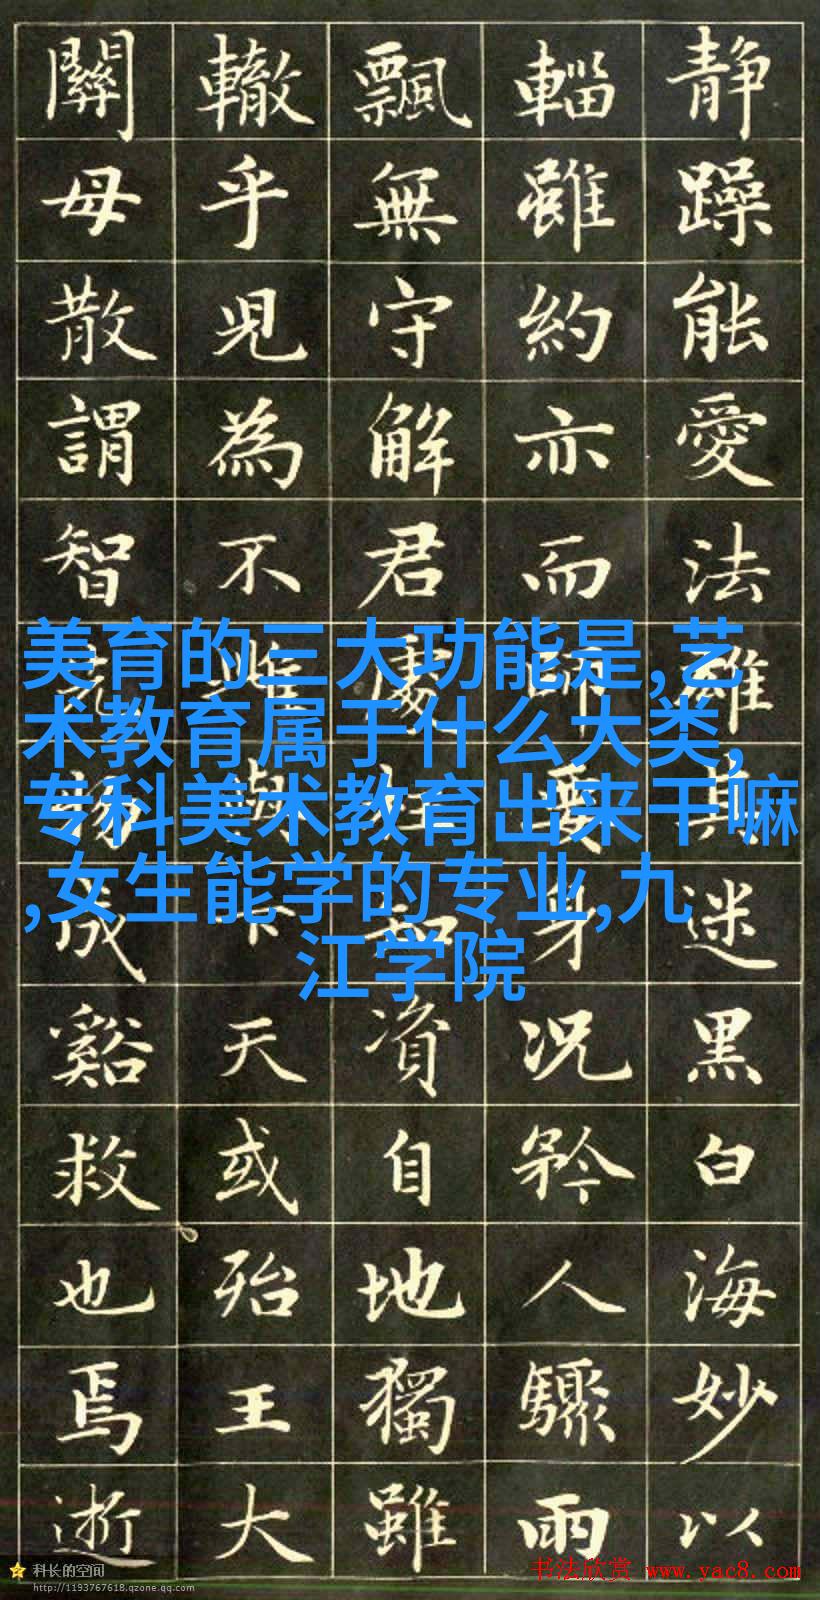 静躁能愛法其迷黑白海妙以
輜雖約亦而師身況矜人驟雨
飄無守解君處資自地獨雖
轍乎児為不天或殆王大
關母散謂智成谿救也焉逝
美育的三大功能是,艺
术教育属于什么大类,
专科美术教育出来干嘛
,女生能学的专业,九
江学院
科长的空间
http://1193767618.qzone.qq.com
书法欣赏 www.yac8.com